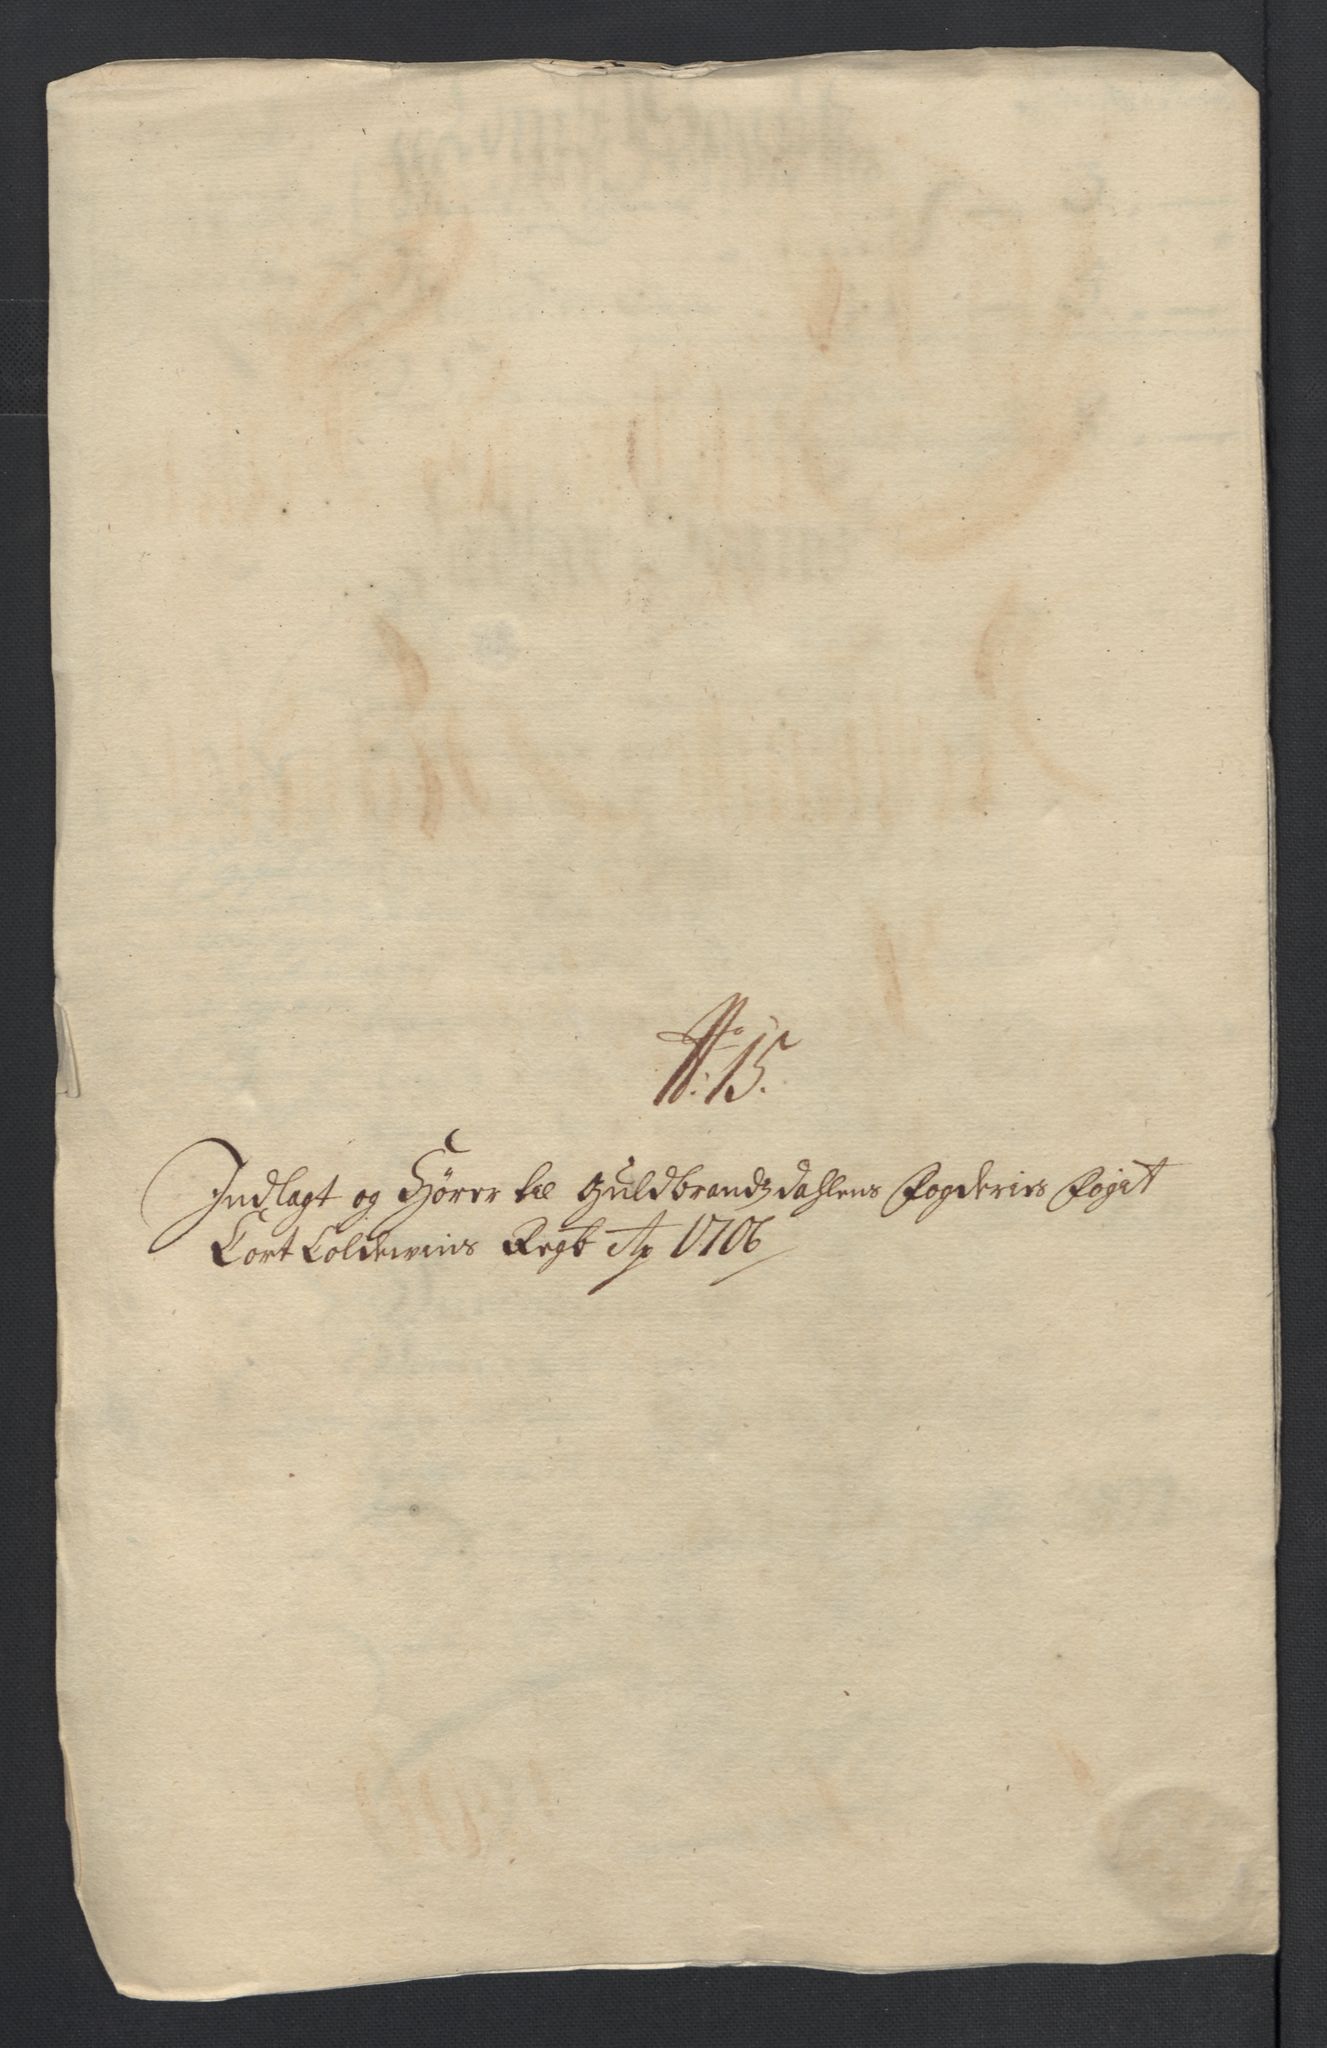 No: 15.
Indlagt og Hører til Guldbrandzdahlens Fogderies Fogit
Cort Coldewins Regb Ao 1706